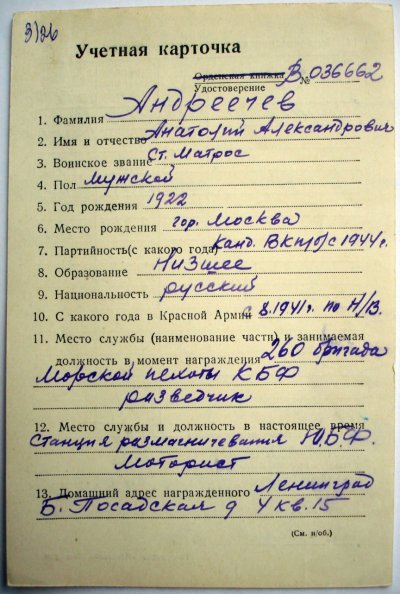 3/26
Учетная карточка
Орденская книжка В № 036662
Удостоверение
1. Фамилия Андреечев
2. Имя и отчество Анатолий Александрович
3. Воинское звание Ст. Матрос
4. Пол Мужской
5. Год рождения 1922
6. Место рождения гор. Москва
7. Партийность (с какого года) канд. ВКП(б) с 1944 г.
8. Образование Низшее
9. Национальность русский
10. С какого года в Красной Армии с 8.1941г. по Н/В.
11. Место службы (наименование части) и занимаемая
должность в момент награждения 260 бригада
Морской пехоты КБФ
разведчик
12. Место службы и должность в настоящее время
Станция размагничевания
Моторист
13. Домашний адрес награжденного Ленинград
Б. Посадская д 4 кв. 15
(См. н/об.)